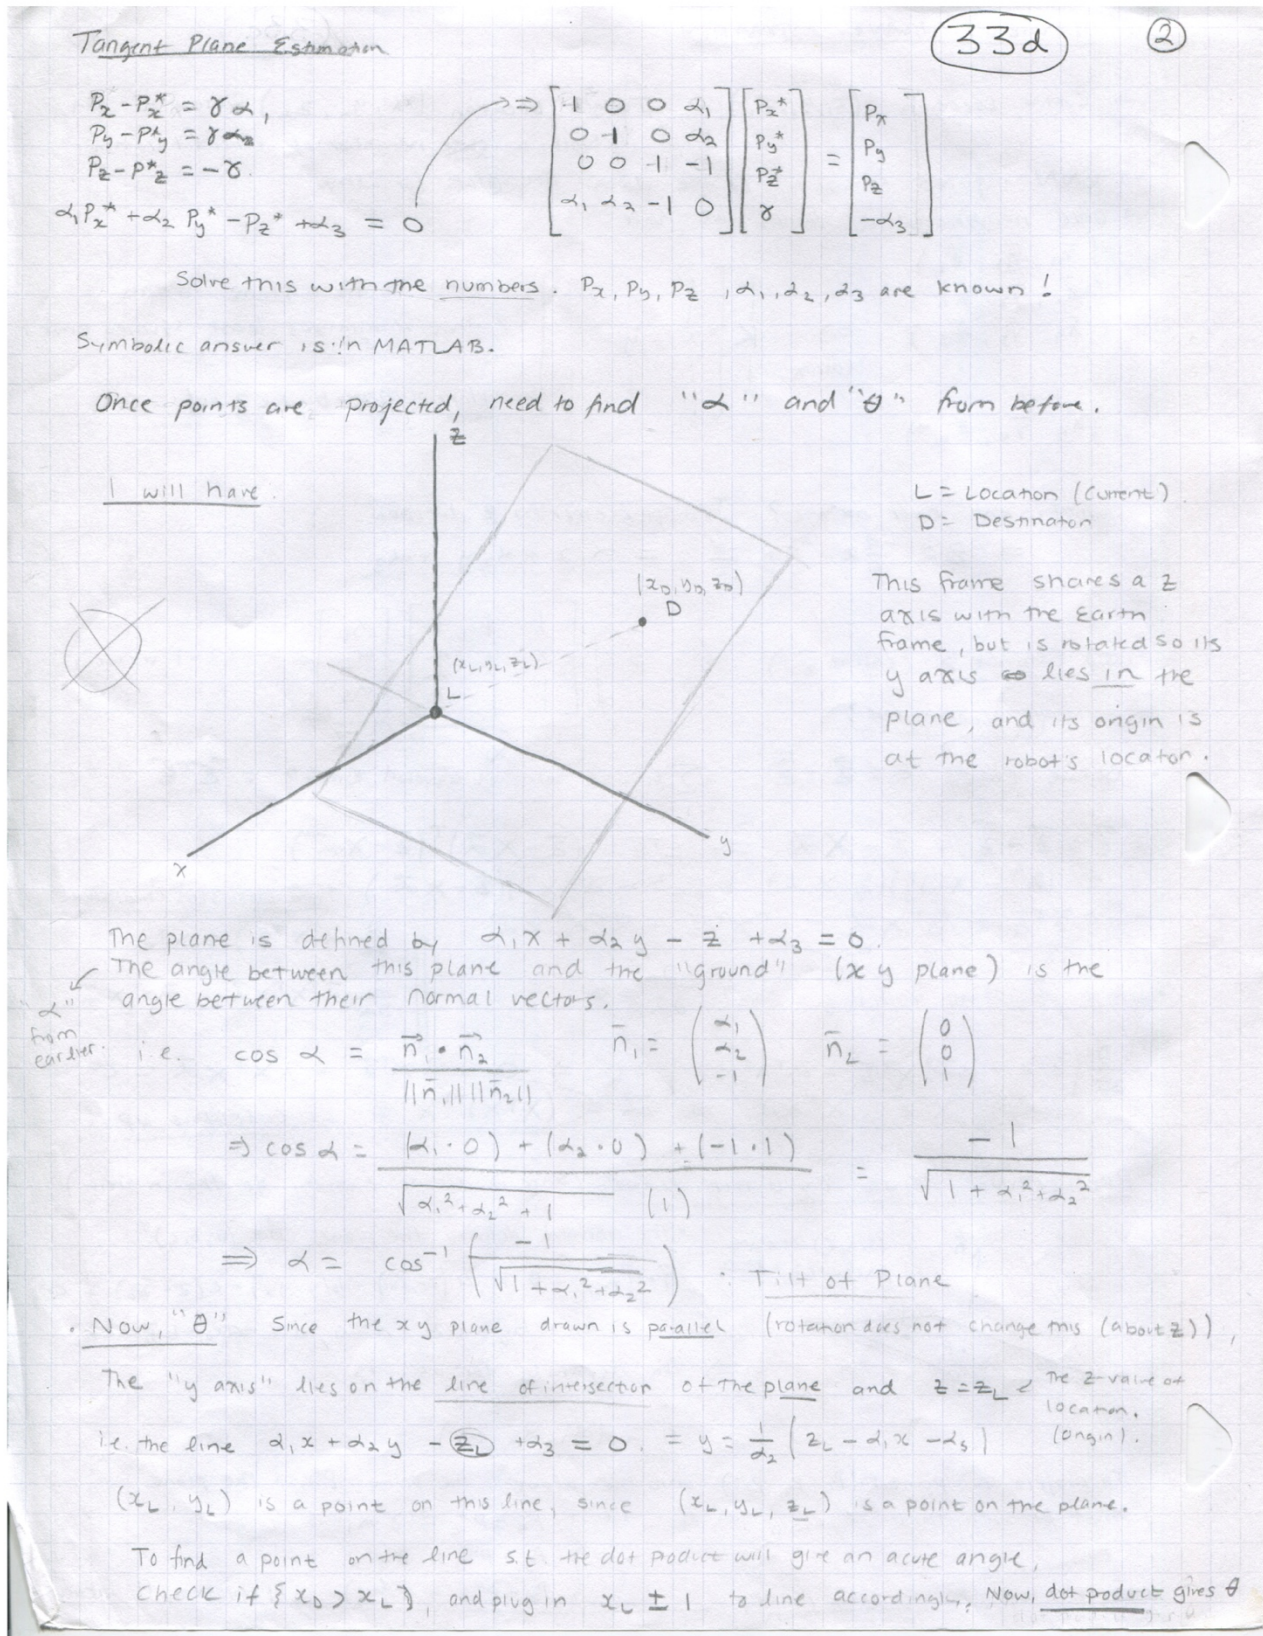 Tangent Plane Estimation
33d
2
Px - Px* = γα1
Py - Py* = γα2
Pz - Pz* = -γ.
α1Px* + α2 Py* - Pz* + α3 = 0
⇒ [1 0 0 α1] [Px*] = [Px]
[0 1 0 α2] [Py*] [Py]
[0 0 1 -1] [Pz*] [Pz]
[α1 α2 -1 0] [γ] [-α3]
Solve this with the numbers. Px, Py, Pz, α1, α2, α3 are known!
Symbolic answer is in MATLAB.
Once points are projected, need to find "α" and "θ" from before.
I will have
z
L = Location (current).
D = Destination
(xD, yD, zD)
D
(xL, yL, zL)
L
x
y
This frame shares a z
axis with the Earth
frame, but is rotated so its
y axis lies in the
plane, and its origin is
at the robot's locator.
The plane is defined by α1x + α2y - z + α3 = 0.
The angle between this plane and the "ground" (xy plane) is the
angle between their normal vectors.
"α"
from
earlier.
i.e. cos α = n1 • n2 / ||n1|| ||n2|| n1 = (α1 α2 -1) n2 = (0 0 1)
⇒ cos α = (α1 · 0) + (α2 · 0) + (-1 · 1) / √(α1² + α2² + 1) (1) = -1 / √(1 + α1² + α2²)
⇒ α = cos⁻¹ ( -1 / √(1 + α1² + α2²) ) : Tilt of Plane
• Now, "θ" Since the xy plane drawn is parallel (rotation does not change this (about z)),
The "y axis" lies on the line of intersection of the plane and z = zL ← The z-value of
location.
(origin).
i.e. the line α1x + α2y - zL + α3 = 0. = y = 1/α2 ( zL - α1x - α3 )
(xL, yL) is a point on this line, since (xL, yL, zL) is a point on the plane.
To find a point on the line s.t. the dot product will give an acute angle,
Check if {xD > xL}, and plug in xL ± 1 to line accordingly. Now, dot product gives θ